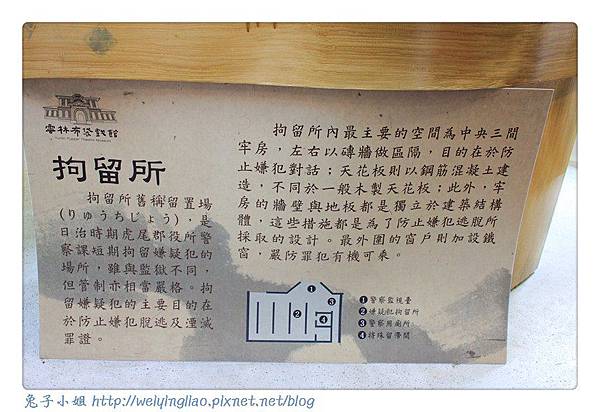 雲林布袋戲館
拘留所
拘留所舊稱留置場
(りゅうちじょう)，是
日治時期虎尾郡役所警
察課短期拘留嫌疑犯的
場所，雖與監獄不同，
但管制亦相當嚴格。拘
留嫌疑犯的主要目的在
於防止嫌犯脫逃及湮滅
罪證。
拘留所內最主要的空間為中央三間
牢房，左右以磚牆做區隔，目的在於防
止嫌犯對話；天花板則以鋼筋混凝土建
造，不同於一般木製天花板；此外，牢
房的牆壁與地板都是獨立於建築結構
體，這些措施都是為了防止嫌犯逃脫所
採取的設計。最外圍的窗戶則加設鐵
窗，嚴防罪犯有機可乘。
1 2 3 4
1 警察監視臺
2 嫌疑犯拘留所
3 警察用廁所
4 特殊留滯間
兔子小姐 http://welyingliao.pixnet.net/blog